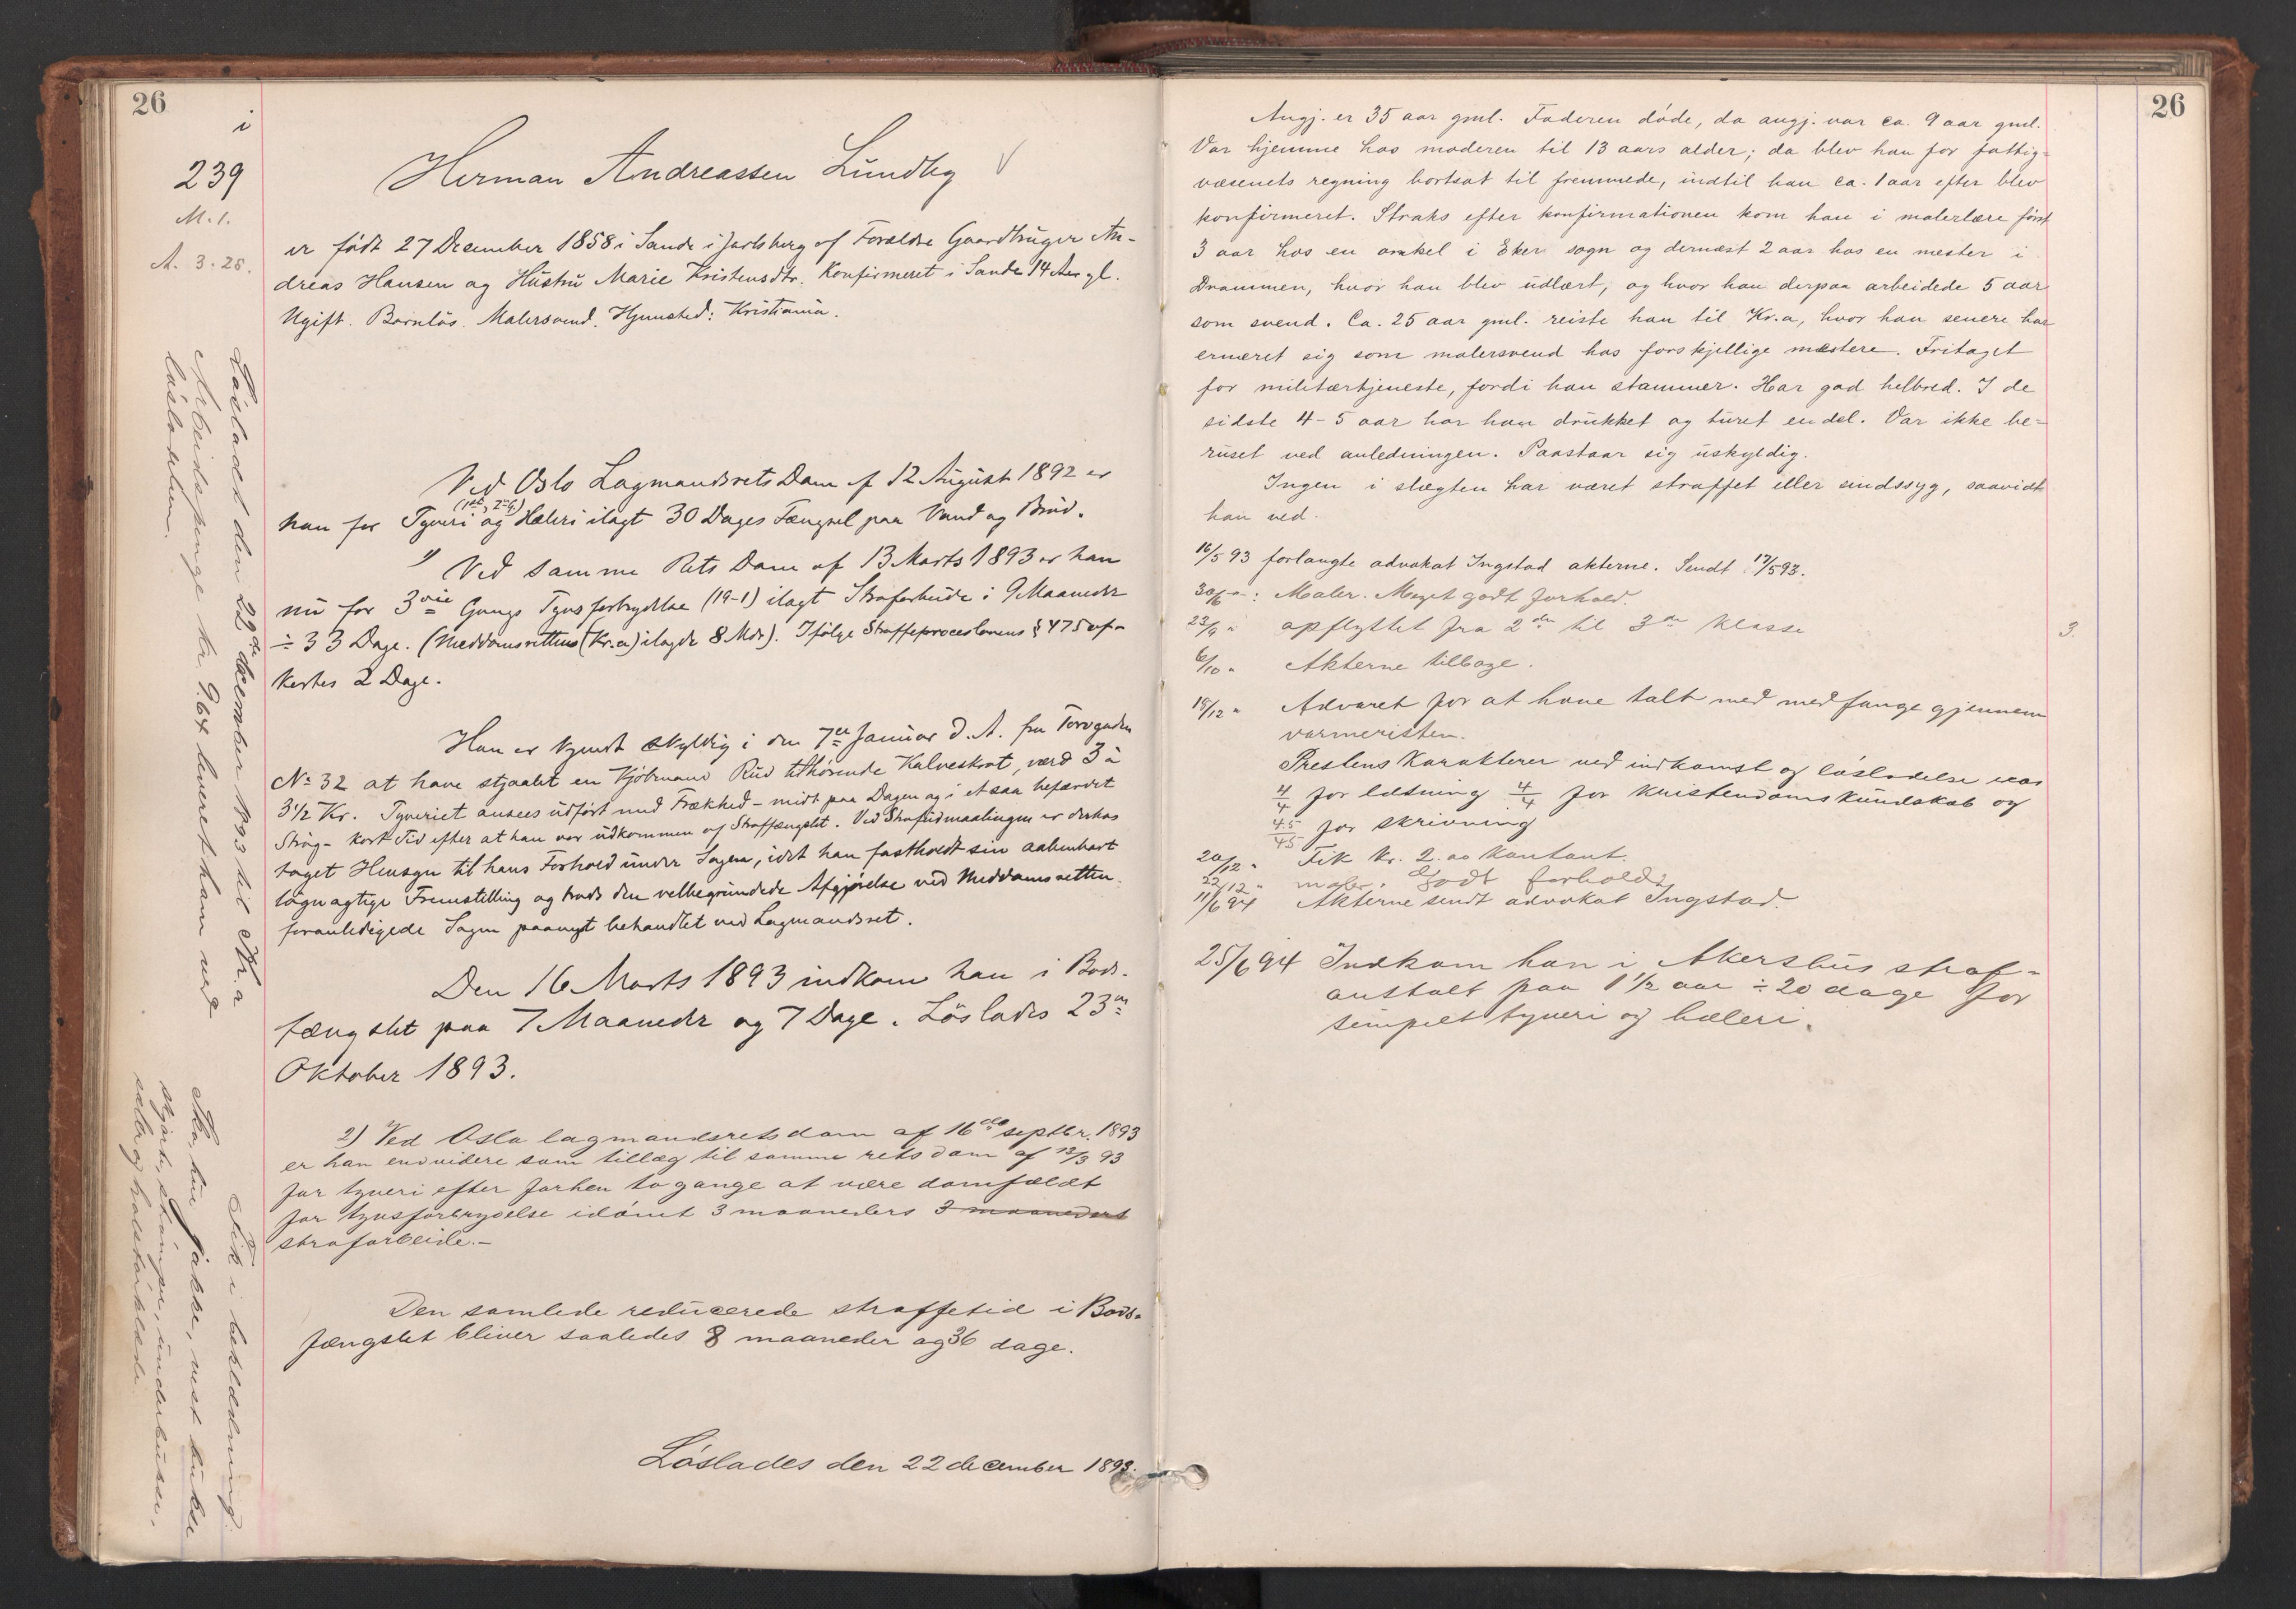 26
i
239
M. 1.
A. 3. 25.
Herman Andreassen Lundby
er født 27 December 1858 i Sande i Jarlsberg af Forældre Gaardbruger An-
dreas Hansen og Hustru Marie Kristensdtr. Konfirmeret i Sande 14 Aar gl.
Ugift. Barnløs. Malersvend. Hjemsted: Kristiania.
Ved Oslo Lagmandsrets Dom af 12 August 1892 er
han for Tyveri (1ste, 2den G) og Hæleri ilagt 30 Dages Fængsel paa Vand og Brød.
1) Ved samme Rets Dom af 13 Marts 1893 er han
nu for 3die Gangs Tyvsforbrydelse (19-1) ilagt Strafarbeide i 9 Maaneder
÷ 33 Dage. (Meddomsretten (Kr.a) ilagde 8 Mdr). Ifølge Straffeproceslovens § 475 af-
kortes 2 Dage.
Han er kjendt skyldig i den 7de Januar d. A. fra Torvgaden
No 32 at have stjaalet en Kjøbmand Rud tilhørende Kalveskrot, værd 3 à
3 1/2 Kr. Tyveriet ansees udført med Frækhed - midt paa Dagen og i et saa befærdet
Strøg - kort Tid efter at han var udkommen af Straffængslet. Ved Strafudmaalingen er derhos
taget Hensyn til hans Forhold under Sagen, idet han fastholdt sin aabenbart
løgnagtige Fremstilling og trods den velbegrundede Afgjørelse ved Meddomsretten
foranledigede Sagen paanyt behandlet ved Lagmandsret.
Den 16 Marts 1893 indkom han i Bods-
fængslet paa 7 Maaneder og 7 Dage. Løslades 23de
Oktober 1893.
2) Ved Oslo lagmandsrets dom af 16de septbr. 1893
er han endvidere som tillæg til samme rets dom af 13/3 93
for tyveri efter forhen to gange at være domfældt
for tyvsforbrydelse idømt 3 maaneders 3 maaneders
strafarbeide.-
Den samlede reducerede straffetid i Bods-
fængslet bliver saaledes 8 maaneder og 36 dage.
Løslades den 22 december 1893.
Løsladet den 22de december 1893 til Kr.a
Arbeidspenge kr 9.64 leveret ham ved
løsladelsen.
Fik i beklædning:
Sko, hue, jakke, vest bukse
skjorte, strømper, underbukse,
seler og halstørklæde.
26
Angj. er 35 aar gml. Faderen døde, da angj. var ca. 9 aar gml.
Var hjemme hos moderen til 13 aars alder; da blev han for fattig-
væsenets regning bortsat til fremmede, indtil han ca. 1 aar efter blev
konfirmeret. Straks efter konfirmationen kom han i malerlære først
3 aar hos en onkel i Eker sogn og dernæst 2 aar hos en mester i
Drammen, hvor han blev udlært, og hvor han derpaa arbeidede 5 aar
som svend. Ca. 25 aar gml. reiste han til Kr.a, hvor han senere har
ernæret sig som malersvend hos forskjellige mestere. Fritaget
for militærtjeneste, fordi han stammer. Har god helbred. I de
sidste 4-5 aar har han drukket og turet endel. Var ikke be-
ruset ved anledningen. Paastaar sig uskyldig.
Ingen i slægten har været straffet eller sindssyg, saavidt
han ved.
16/5 93 forlangte advokat Ingstad akterne. Sendt 17/5 93.
30/6 - : Maler. Meget godt forhold.
23/9 " opflyttet fra 2den til 3die klasse
3.
6/10 " Akterne tilbage.
18/12 " Advaret for at have talt med medfange gjennem
varmeristen.
Prestens karakterer ved indkomst og løsladelse var
4/4 for læsning 4/4 for kristendomskundskab og
4.5/4.5 for skrivning
20/12 " Fik kr. 2.00 kontant.
22/12 " maler. Godt forhold.
11/6 94 Akterne sendt advokat Ingstad.
25/6 94 Indkom han i Akershus straf-
anstalt paa 1 1/2 aar ÷ 20 dage for
simpelt tyveri og hæleri.